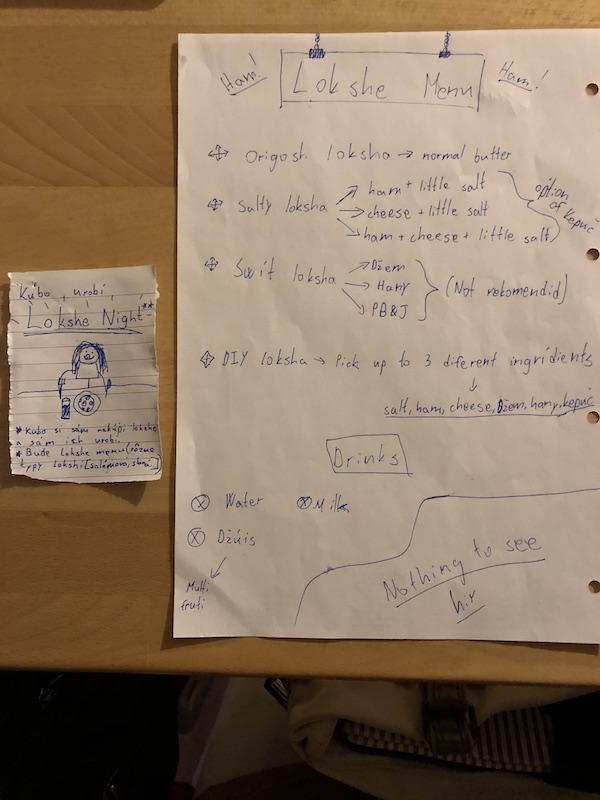 Kubo, urobí,
Lokshe Night**
* Kubo si sám nakúpi lokshe
a sám ich urobí.
* Bude lokshe menu (rôzne
typy lokshí [salámová, slaná])
Ham!
Lokshe Menu
Ham!
Origosh loksha → normal butter
Salty loksha
ham + little salt
cheese + little salt
ham + cheese + little salt
option
of kepuč
Swít loksha
Džem
Hany
PB&J
(Not rekomendid)
DIY loksha → Pick up to 3 diferent ingridients
salt, ham, cheese, Džem, hany, kepuč
Drinks
Water
Milk
Džúis
Multi
fruti
Nothing to see
hir